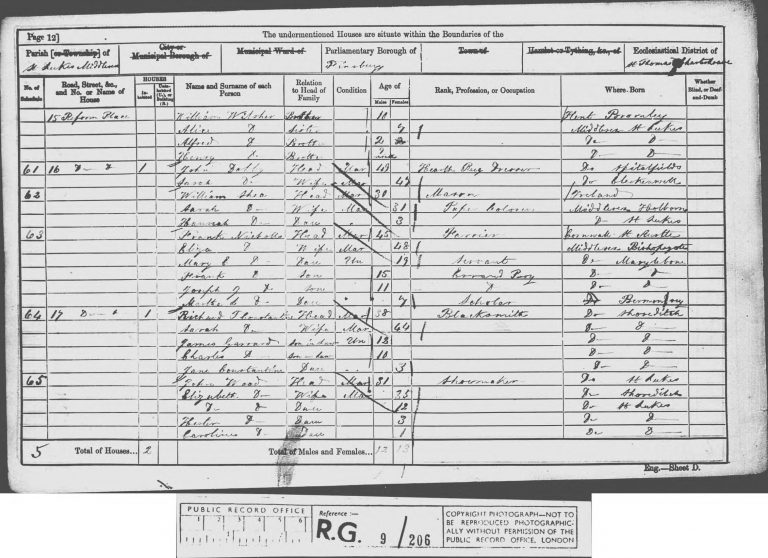 Page 12]
The undermentioned Houses are situate within the Boundaries of the
Parish [or Township] of
City or Municipal Borough of
Municipal Ward of
Parliamentary Borough of
Town of
Hamlet or Tything, &c., of
Ecclesiastical District of
St Lukes Middlesex
Finsbury
St Thomas Charterhouse
No. of Schedule
Road, Street, &c., and No. or Name of House
HOUSES
Inhabited
Uninhabited (U.), or Building (B.)
Name and Surname of each Person
Relation to Head of Family
Condition
Age of
Males
Females
Rank, Profession, or Occupation
Where Born
Whether Blind, or Deaf-and-Dumb
15 Reform Place William Brother 10 Kent
Alice D Sister 7 Middlesex St Lukes
Alfred D Brother 2 Do D
Henry D Brother D D
61 16 D 1 John Head Mar Do Spitalfields
Sarah D Wife Mar 47 Do Clerkenwell
62 William Shea Head Mar 30 Mason Ireland
Sarah D Wife Mar 31 Middlesex Holborn
Hannah D Daur 3 D St Lukes
63 Frank Nicholls Head Mar 45 Farrier Cornwall St
Eliza D Wife Mar 48 Middlesex Bishopsgate
Mary E D Daur Un 19 Servant Do Marylebone
Frank D Son 15 Errand Boy D D
Joseph J D Son 11 D D D
Martha D Daur 7 Scholar Do Bermondsey
64 17 D 1 Richard Constantine Head Mar 38 Blacksmith Do Shoreditch
Sarah D Wife Mar 44 D D
James Garrard Son in law Un 12 D D
Charles D Son in law 10 D D
Jane Constantine Daur 3 D D
65 John Wood Head Mar 31 Shoemaker Do St Lukes
Elizabeth D Wife Mar 35 Do Shoreditch
D D Daur 12 Do St Lukes
Hester D Daur 3 Do D
Caroline D Daur 1 Do D
5 Total of Houses... 2
Total of Males and Females... 12 13
Eng.—Sheet D.
PUBLIC RECORD OFFICE
1 2 3 4 5 6
Reference :—
R.G. 9 / 206
COPYRIGHT PHOTOGRAPH—NOT TO
BE REPRODUCED PHOTOGRAPHIC-
ALLY WITHOUT PERMISSION OF THE
PUBLIC RECORD OFFICE, LONDON